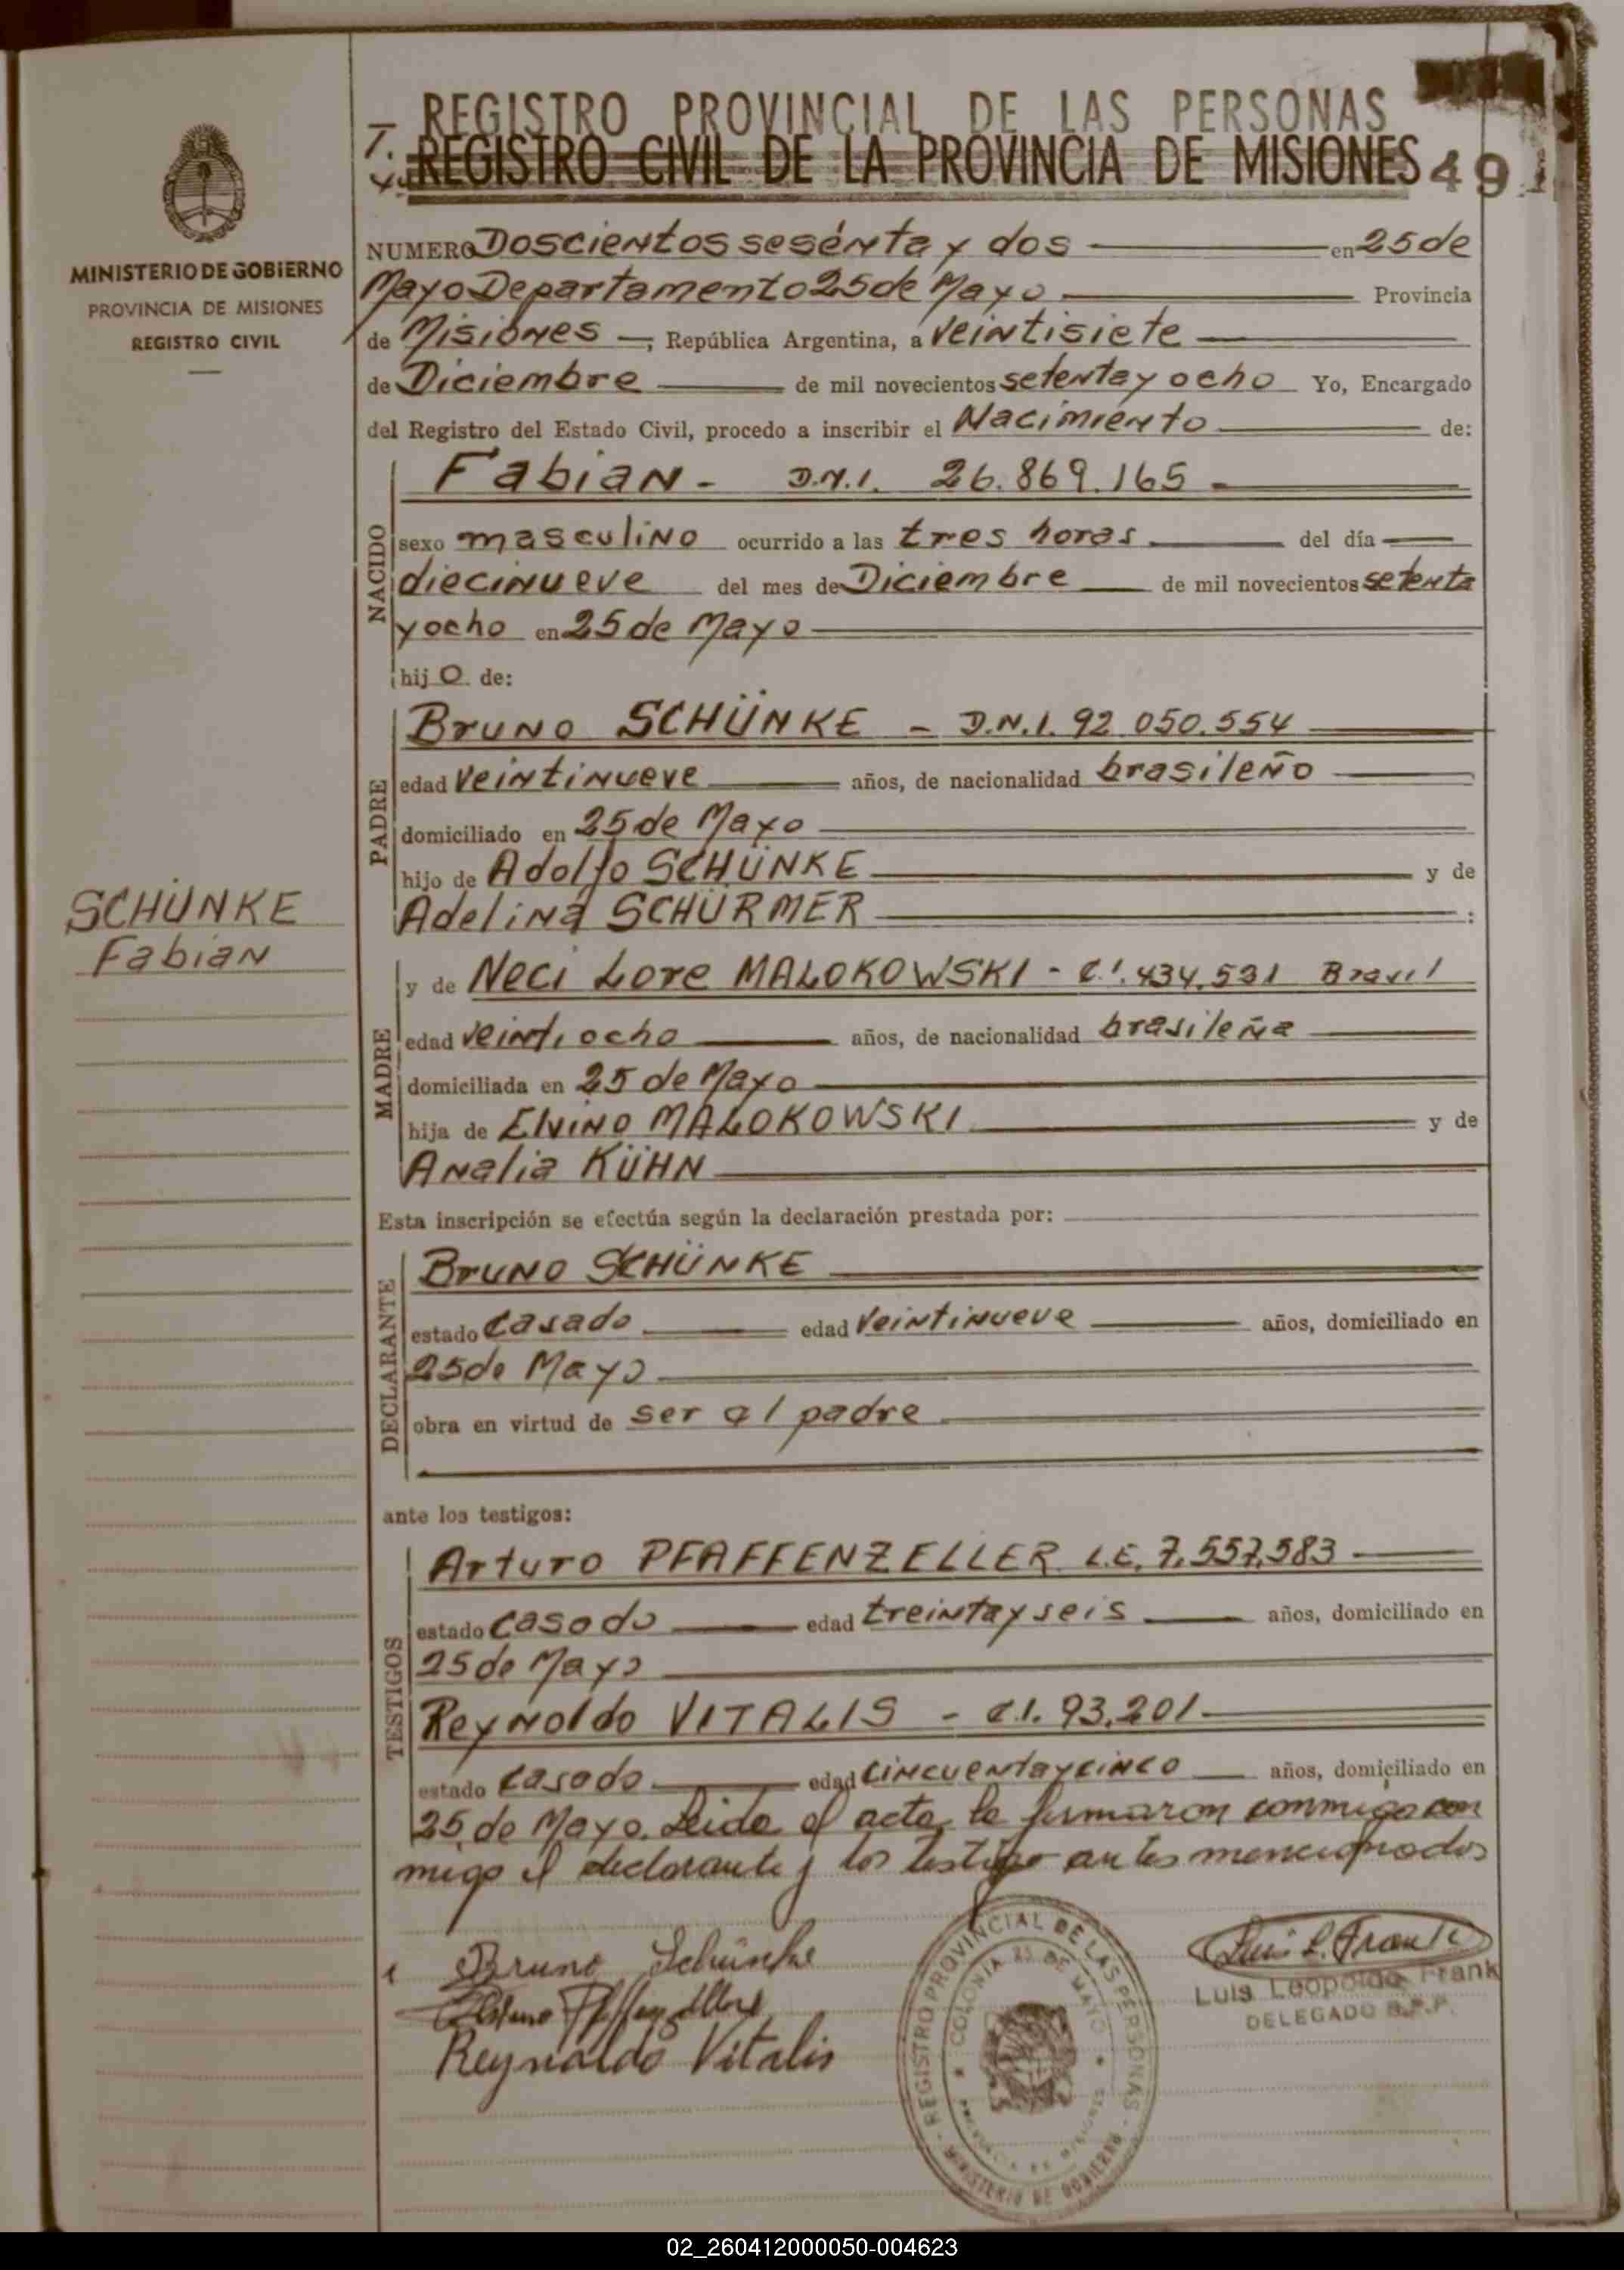 REGISTRO PROVINCIAL DE LAS PERSONAS
REGISTRO CIVIL DE LA PROVINCIA DE MISIONES 49
MINISTERIO DE GOBIERNO
PROVINCIA DE MISIONES
REGISTRO CIVIL
NUMERO Doscientos sesenta y dos en 25 de
Mayo Departamento 25 de Mayo Provincia
de Misiones, República Argentina, a veintisiete
de Diciembre de mil novecientos setenta y ocho Yo, Encargado
del Registro del Estado Civil, procedo a inscribir el Nacimiento de:
NACIDO
Fabian - D.N.I. 26.869.165 -
sexo masculino ocurrido a las tres horas del día
diecinueve del mes de Diciembre de mil novecientos setenta
y ocho en 25 de Mayo
hij o de:
PADRE
Bruno SCHÜNKE - D.N.I. 92.050.554
edad veintinueve años, de nacionalidad brasileño
domiciliado en 25 de Mayo
hijo de Adolfo SCHÜNKE y de
Adelina SCHÜRMER :
SCHÜNKE
Fabian
MADRE
y de Neci Lore MALOKOWSKI - C.I. 434.531 Brasil
edad veintiocho años, de nacionalidad brasileña
domiciliada en 25 de Mayo
hija de Elvino MALOKOWSKI y de
Analia KÜHN
Esta inscripción se efectúa según la declaración prestada por:
DECLARANTE
Bruno SCHÜNKE
estado casado edad veintinueve años, domiciliado en
25 de Mayo
obra en virtud de ser el padre
ante los testigos:
TESTIGOS
Arturo PFAFFENZELLER L.E. 7.557.583
estado casado edad treinta y seis años, domiciliado en
25 de Mayo
Reynoldo VITALIS - C.I. 93.201
estado casado edad cincuenta y cinco años, domiciliado en
25 de Mayo. Leida el acta, la firmaron conmigo con
migo el declarante y los testigo antes mencionados
Bruno Schünke
Reynoldo Vitalis
Luis L. Frank
Luis Leopoldo Frank
DELEGADO R.P.P.
REGISTRO PROVINCIAL DE LAS PERSONAS - MINISTERIO DE GOBIERNO -
COLONIA 25 DE MAYO
PROVINCIA DE MISIONES
02_260412000050-004623